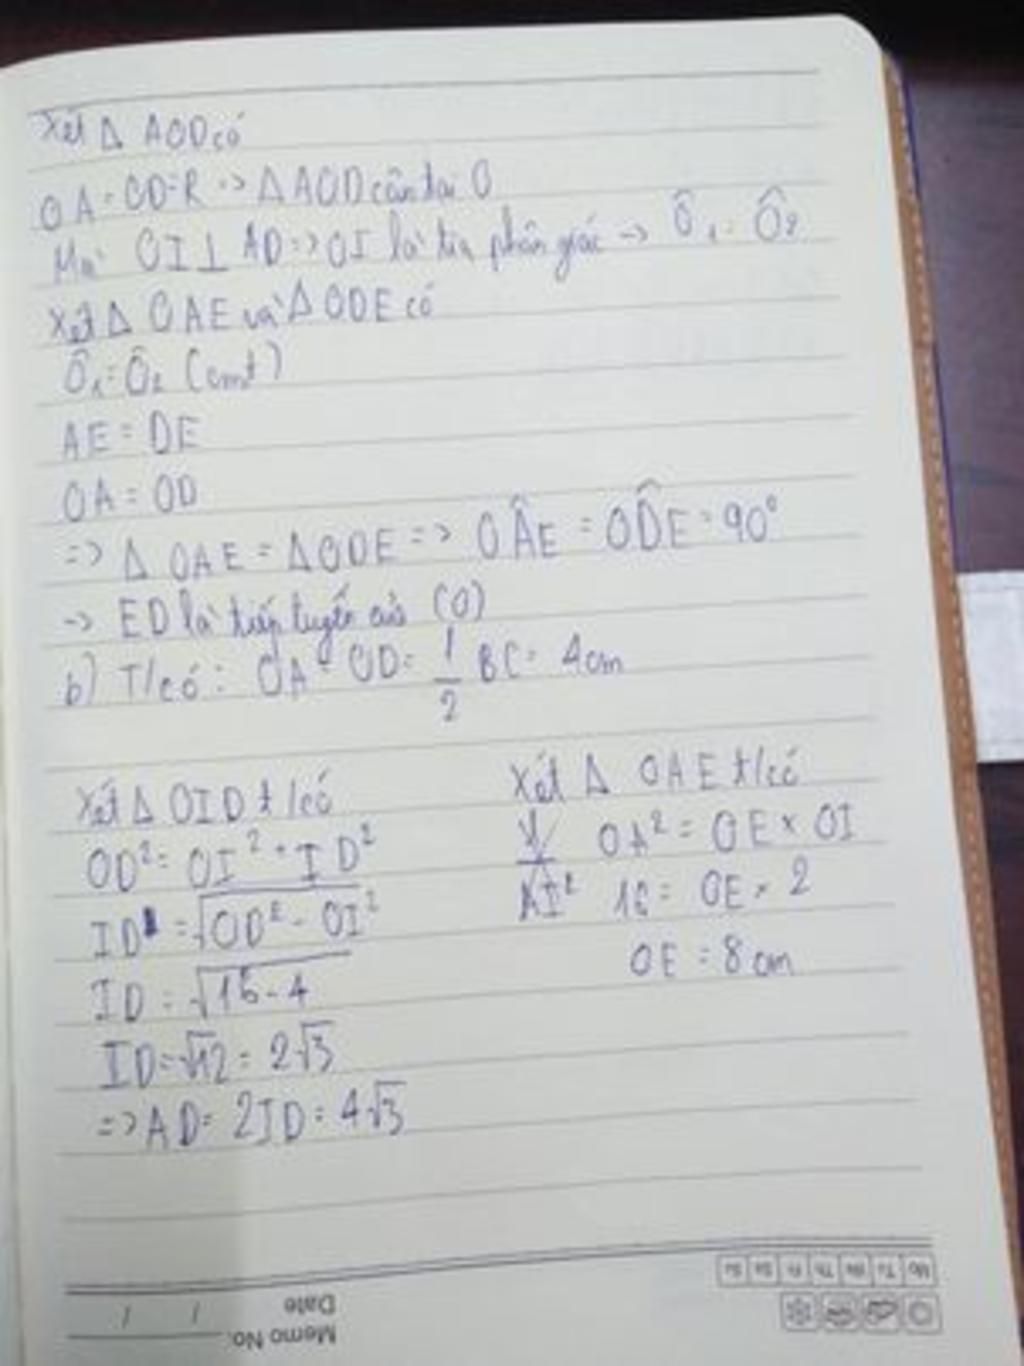 Xét Δ AOD có
OA = OD = R => Δ AOD cân tại O
Mà OI ⊥ AD => OI là tia phân giác -> Ô₁ = Ô₂
Xét Δ OAE và Δ ODE có
Ô₁ = Ô₂ (cmt)
AE = DE
OA = OD
=> Δ OAE = Δ ODE => OÂE = OD̂E = 90°
-> ED là tiếp tuyến của (O)
b) T/có: OA = OD = 1/2 BC = 4cm
Xét Δ OID t/có
OD² = OI² + ID²
ID = √OD² - OI²
ID = √16 - 4
ID = √12 = 2√3
=> AD = 2ID = 4√3
Xét Δ OAE t/có
OA² = OE × OI
AI² 16 = OE × 2
OE = 8 cm
Mo Tu We Th Fr Sa Su
Memo No.
Date / /